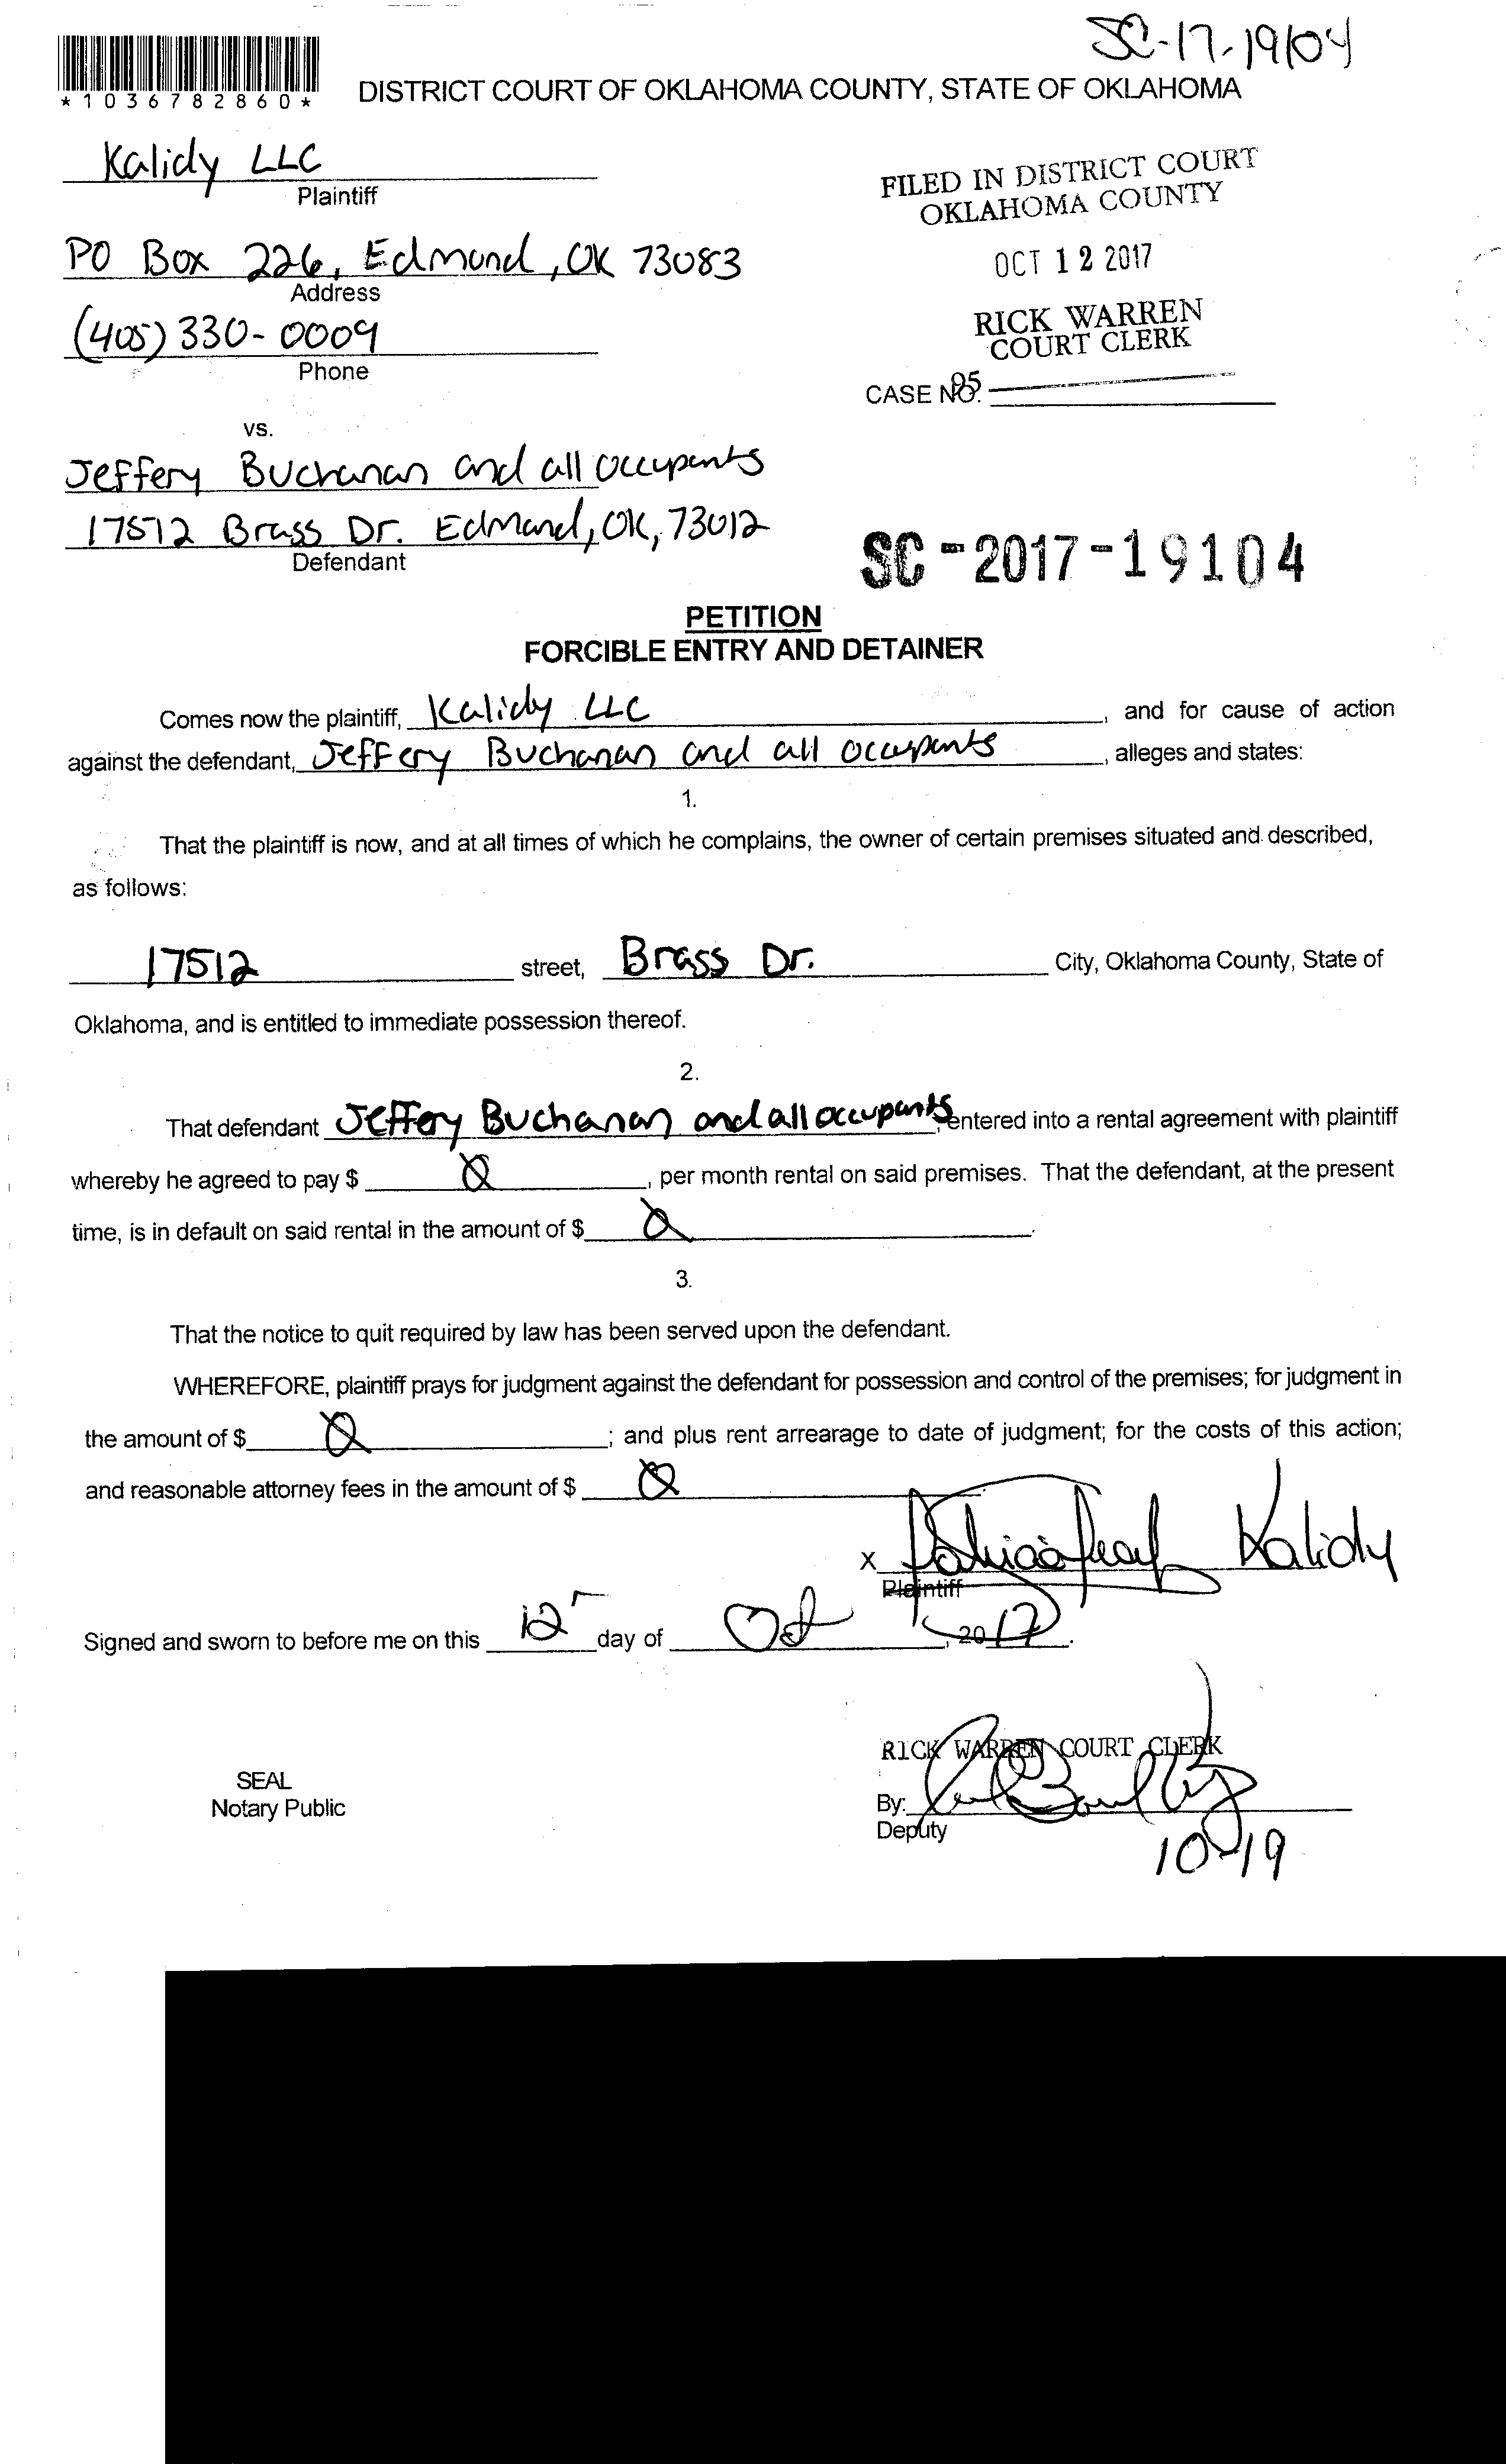 SC-17-19104
*1036782860*
DISTRICT COURT OF OKLAHOMA COUNTY, STATE OF OKLAHOMA
Kalidy LLC
Plaintiff
FILED IN DISTRICT COURT
OKLAHOMA COUNTY
PO Box 226, Edmond, OK 73083
Address
OCT 12 2017
(405) 330-0009
Phone
RICK WARREN
COURT CLERK
95
CASE NO.
vs.
Jeffery Buchanan and all occupants
17512 Brass Dr. Edmond, OK, 73012
Defendant
SC-2017-19104
PETITION
FORCIBLE ENTRY AND DETAINER
Comes now the plaintiff, Kalidy LLC, and for cause of action
against the defendant, Jeffery Buchanan and all occupants, alleges and states:
1.
That the plaintiff is now, and at all times of which he complains, the owner of certain premises situated and described,
as follows:
17512 street, Brass Dr. City, Oklahoma County, State of
Oklahoma, and is entitled to immediate possession thereof.
2.
That defendant Jeffery Buchanan and all occupants, entered into a rental agreement with plaintiff
whereby he agreed to pay $ 0, per month rental on said premises. That the defendant, at the present
time, is in default on said rental in the amount of $ 0.
3.
That the notice to quit required by law has been served upon the defendant.
WHEREFORE, plaintiff prays for judgment against the defendant for possession and control of the premises; for judgment in
the amount of $ 0; and plus rent arrearage to date of judgment; for the costs of this action;
and reasonable attorney fees in the amount of $ 0.
X Kalidy
Plaintiff
Signed and sworn to before me on this 12 day of Oct, 2017.
RICK WARREN COURT CLERK
SEAL
Notary Public
By:
Deputy
10-19